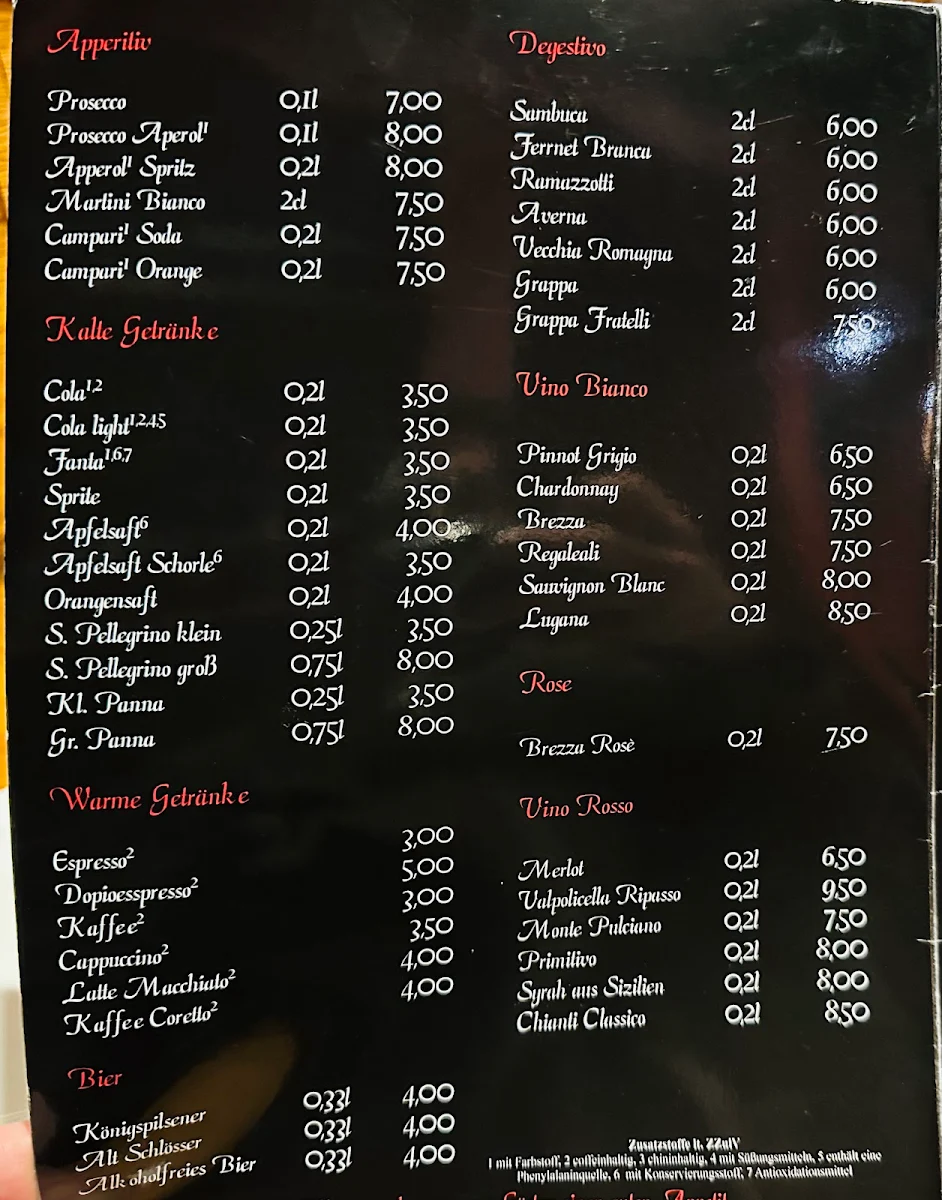 Apperitiv
Prosecco 0,1l 7,00
Prosecco Aperol¹ 0,1l 8,00
Apperol¹ Spritz 0,2l 8,00
Martini Bianco 2cl 7,50
Campari¹ Soda 0,2l 7,50
Campari¹ Orange 0,2l 7,50
Kalte Getränke
Cola¹,² 0,2l 3,50
Cola light¹,²,⁴,⁵ 0,2l 3,50
Fanta¹,⁶,⁷ 0,2l 3,50
Sprite 0,2l 3,50
Apfelsaft⁶ 0,2l 4,00
Apfelsaft Schorle⁶ 0,2l 3,50
Orangensaft 0,2l 4,00
S. Pellegrino klein 0,25l 3,50
S. Pellegrino groß 0,75l 8,00
Kl. Panna 0,25l 3,50
Gr. Panna 0,75l 8,00
Warme Getränke
Espresso² 3,00
Dopioesspresso² 5,00
Kaffee² 3,00
Cappuccino² 3,50
Latte Macchiato² 4,00
Kaffee Coretto² 4,00
Bier
Königspilsener 0,33l 4,00
Alt Schlösser 0,33l 4,00
Alkoholfreies Bier 0,33l 4,00
Degestivo
Sambuca 2cl 6,00
Ferrnet Branca 2cl 6,00
Ramazzotti 2cl 6,00
Averna 2cl 6,00
Vecchia Romagna 2cl 6,00
Grappa 2cl 6,00
Grappa Fratelli 2cl 7,50
Vino Bianco
Pinnot Grigio 0,2l 6,50
Chardonnay 0,2l 6,50
Brezza 0,2l 7,50
Regaleali 0,2l 7,50
Sauvignon Blanc 0,2l 8,00
Lugana 0,2l 8,50
Rose
Brezza Rosè 0,2l 7,50
Vino Rosso
Merlot 0,2l 6,50
Valpolicella Ripasso 0,2l 9,50
Monte Pulciano 0,2l 7,50
Primitivo 0,2l 8,00
Syrah aus Sizilien 0,2l 8,00
Chianti Classico 0,2l 8,50
Zusatzstoffe lt. ZZulV
1 mit Farbstoff, 2 coffeinhaltig, 3 chininhaltig, 4 mit Süßungsmitteln, 5 enthält eine
Phenylalaninquelle, 6 mit Konservierungsstoff, 7 Antioxidationsmittel